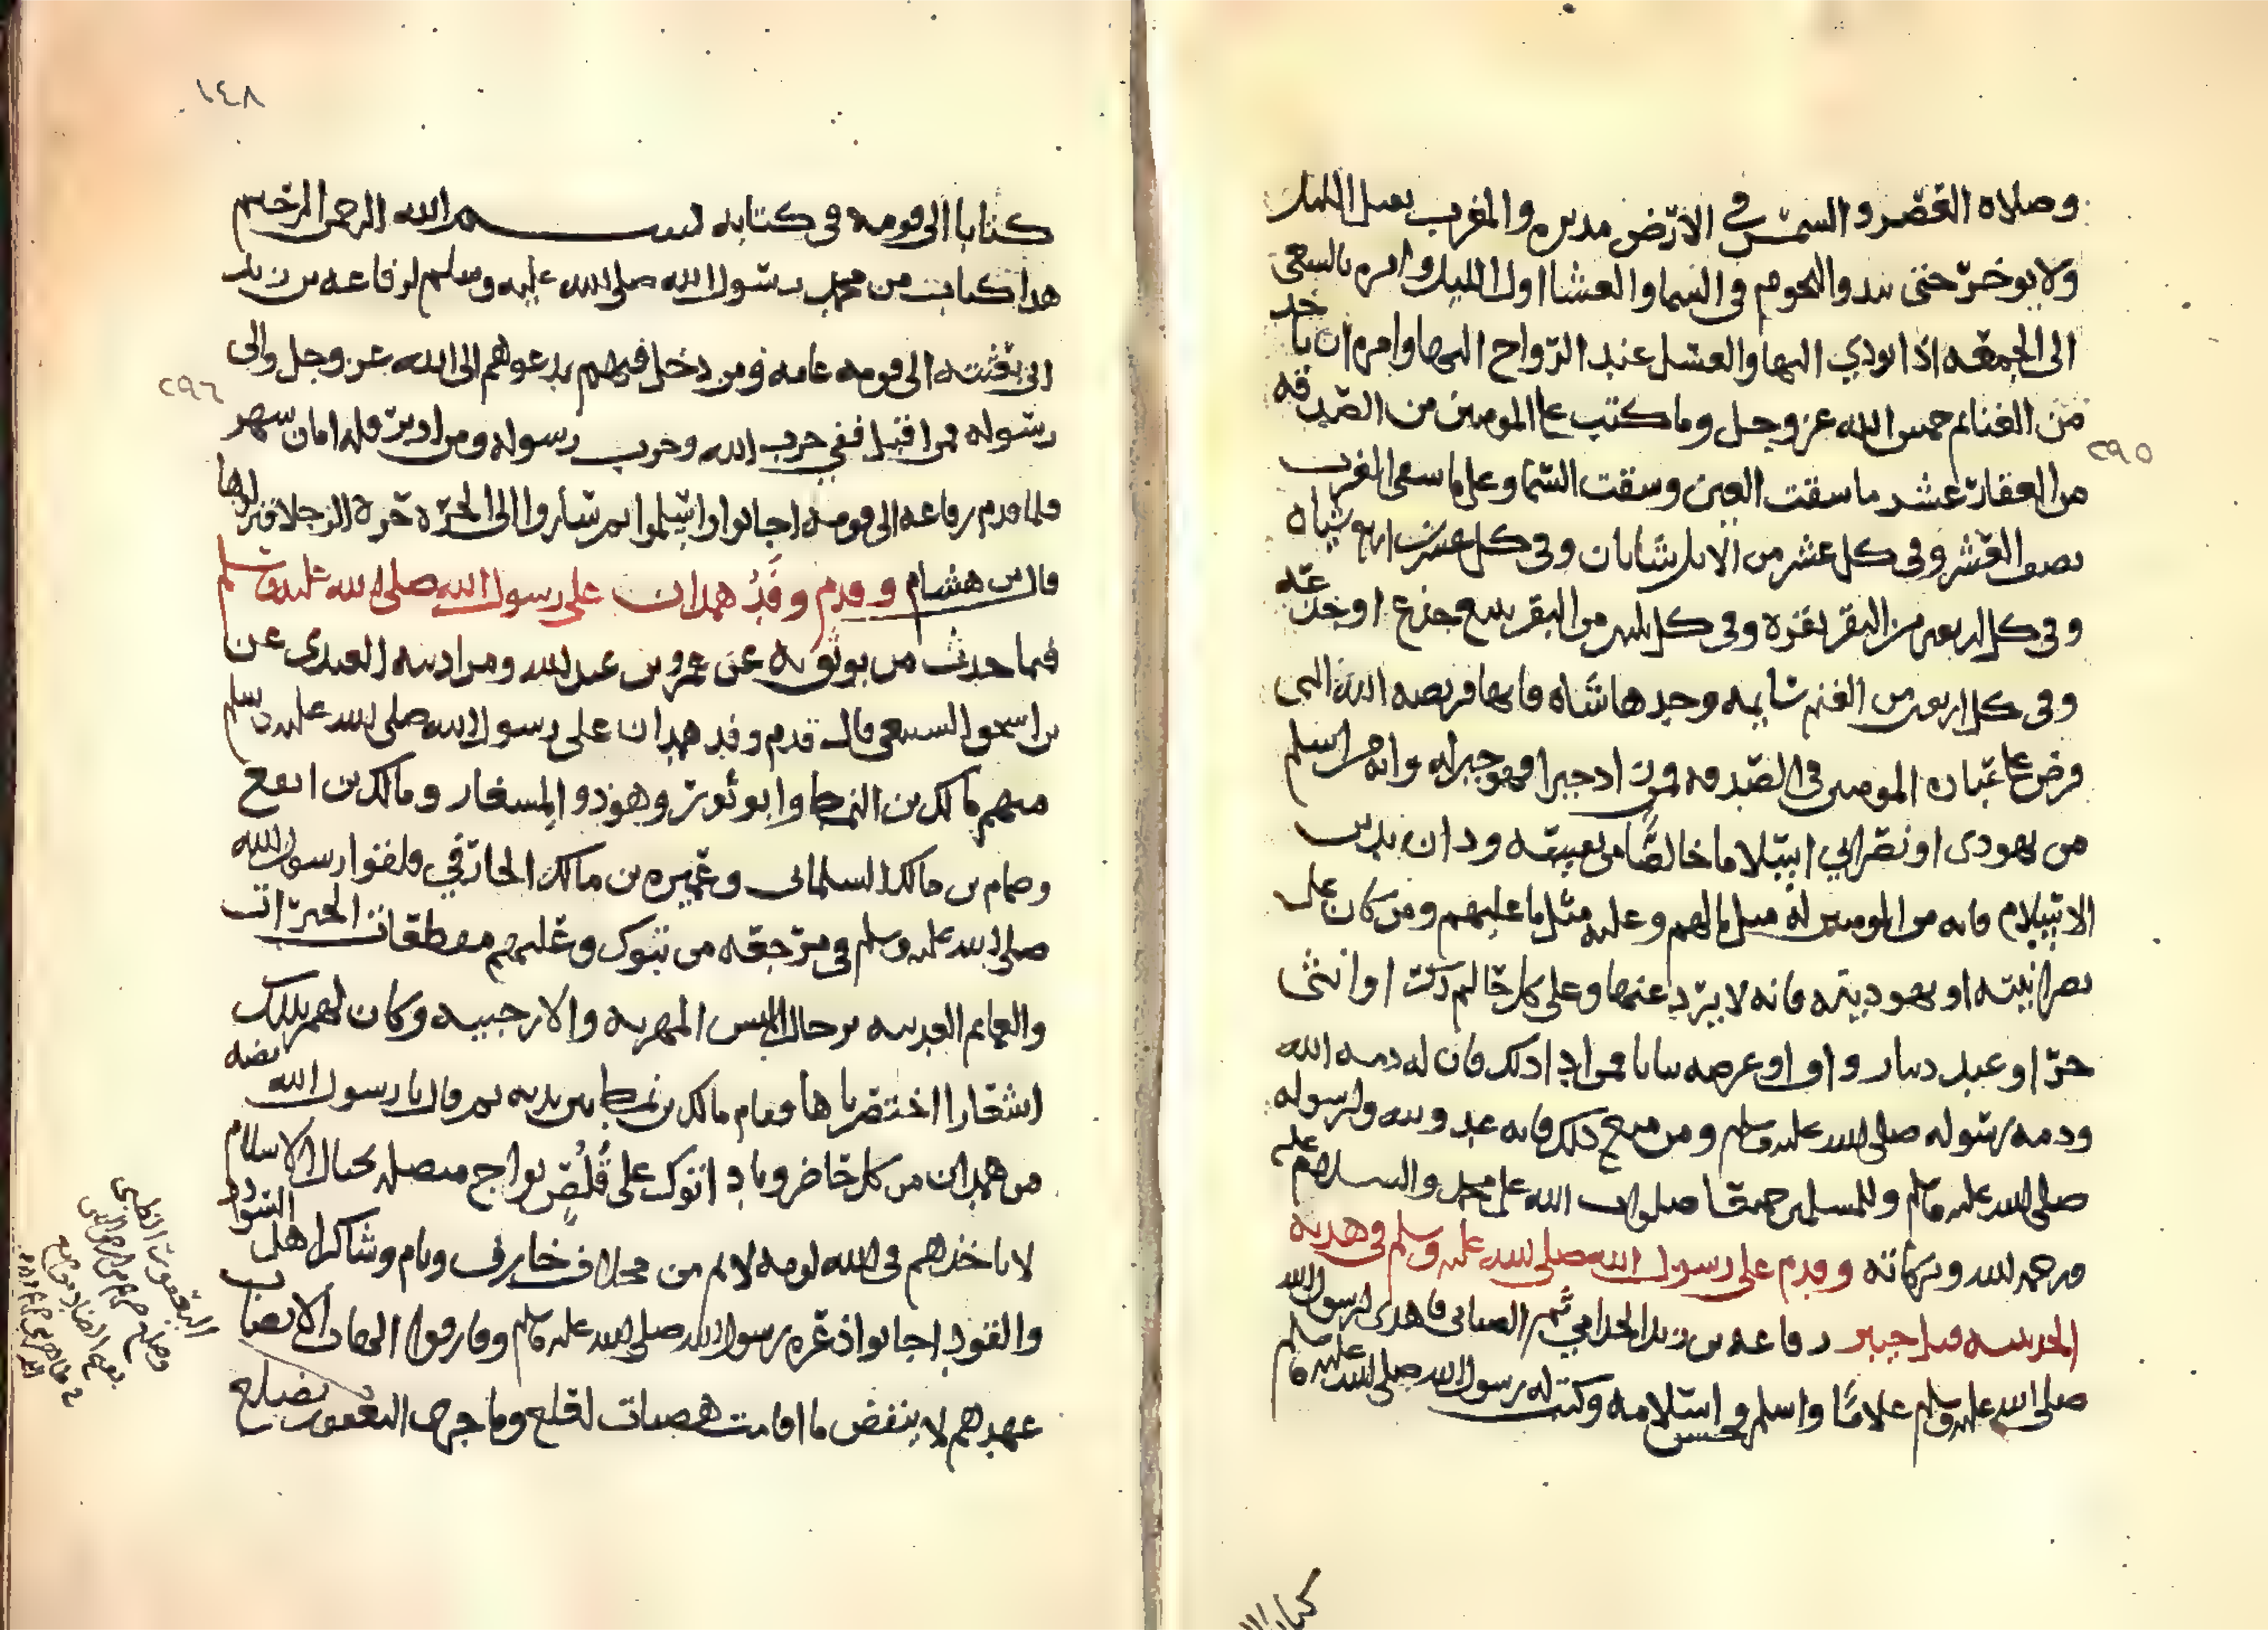 وصلاه العصر والشمس في الارض مدبره والمغرب يقبل الليل
ولا يوخر حتى تبدو النجوم في السما والعشا اول الليل وامره بالسعي
الى الجمعه اذا نودي اليها والغسل عند الرواح اليها وامره ان ياخذ
من الغنائم خمس الله عز وجل وما كتب على المومنين من الصدقه
٢٩٥
من العقار عشر ما سقت العين وسقت السما وعلى ما سقى الغرب
نصف العشر وفي كل عشر من الابل شاتان وفي كل عشرين اربع شياه
وفي كل اربعين من البقر بقره وفي كل ثلثين من البقر تبيع جذع او جذعه
وفي كل اربعين من الغنم سايمه وحدها شاه فانها فريضه الله التي
فرض على عباده المومنين في الصدقه فمن زاد خيرا فهو خير له وانه من اسلم
من يهودي او نصراني اسلاما خالصا من نفسه ودان بدين
الاسلام فانه من المومنين له مثل ما لهم وعليه مثل ما عليهم ومن كان على
نصرانيته او يهوديته فانه لا يرد عنها وعلى كل حالم ذكر او انثى
حر او عبد دينار واف او عرضه ثيابا فمن ادا ذلك فان له ذمه الله
وذمه رسوله صلى الله عليه وسلم ومن منع ذلك فانه عدو لله ولرسوله
صلى الله عليه وسلم وللمسلمين جميعا صلوات الله على محمد والسلم عليه
ورحمه الله وبركاته وقدم على رسول الله صلى الله عليه وسلم في هدنه
الحديبيه قبل خيبر رفاعه بن زيد الجذامي ثم الضبابي فاهدى لرسول الله
صلى الله عليه وسلم غلاما واسلم فحسن اسلامه وكتب له رسول الله صلى الله عليه وسلم
١٤٨
كتابا الى قومه في كتابه بسم الله الرحمن الرحيم
هذا كتاب من محمد رسول الله صلى الله عليه وسلم لرفاعه بن زيد
اني بعثته الى قومه عامه ومن دخل فيهم يدعوهم الى الله عز وجل والى
٢٩٦
رسوله فمن اقبل ففي حزب الله وحزب رسوله ومن ادبر فله امان شهر
فلما قدم رفاعه الى قومه اجابوا واسلموا ثم ساروا الى الحره حره الرجلا فنزلوها
قال بن هشام وقدم وفد همدان على رسول الله صلى الله عليه وسلم
فيما حدث من يوثق به عن عمرو بن عبد الله ومن ادينه العبدى عن
بن اسحق السبيعي قال قدم وفد همدان على رسول الله صلى الله عليه وسلم
منهم مالك بن النمط وابو ثور وهو ذو المسعار ومالك بن ايفع
وضمام بن مالك السلماني وعميره بن مالك الخارفي فلقوا رسول الله
صلى الله عليه وسلم في مرجعه من تبوك وعليهم مقطعات الحبرات
والعمايم العدنيه برحال الميس المهريه والارحبيه وكان لهم بتلك
اشعارا اختصرناها وقام مالك بن نمط بين يديه ثم قال يا رسول الله نصيه
من همدان من كل حاضر وباد اتوك على قلص نواج متصله بحبال الاسلام
لا تاخذهم في الله لومه لائم من مخلاف خارف ويام وشاكر اهل السواد
والقود اجابوا دعوه رسول الله صلى الله عليه وسلم وفارقوا الالهات الانصاب
عهدهم لا ينقض ما اقامت هضبات لعلع وما جرى اليعفور بضلع
اليعفور الظبي